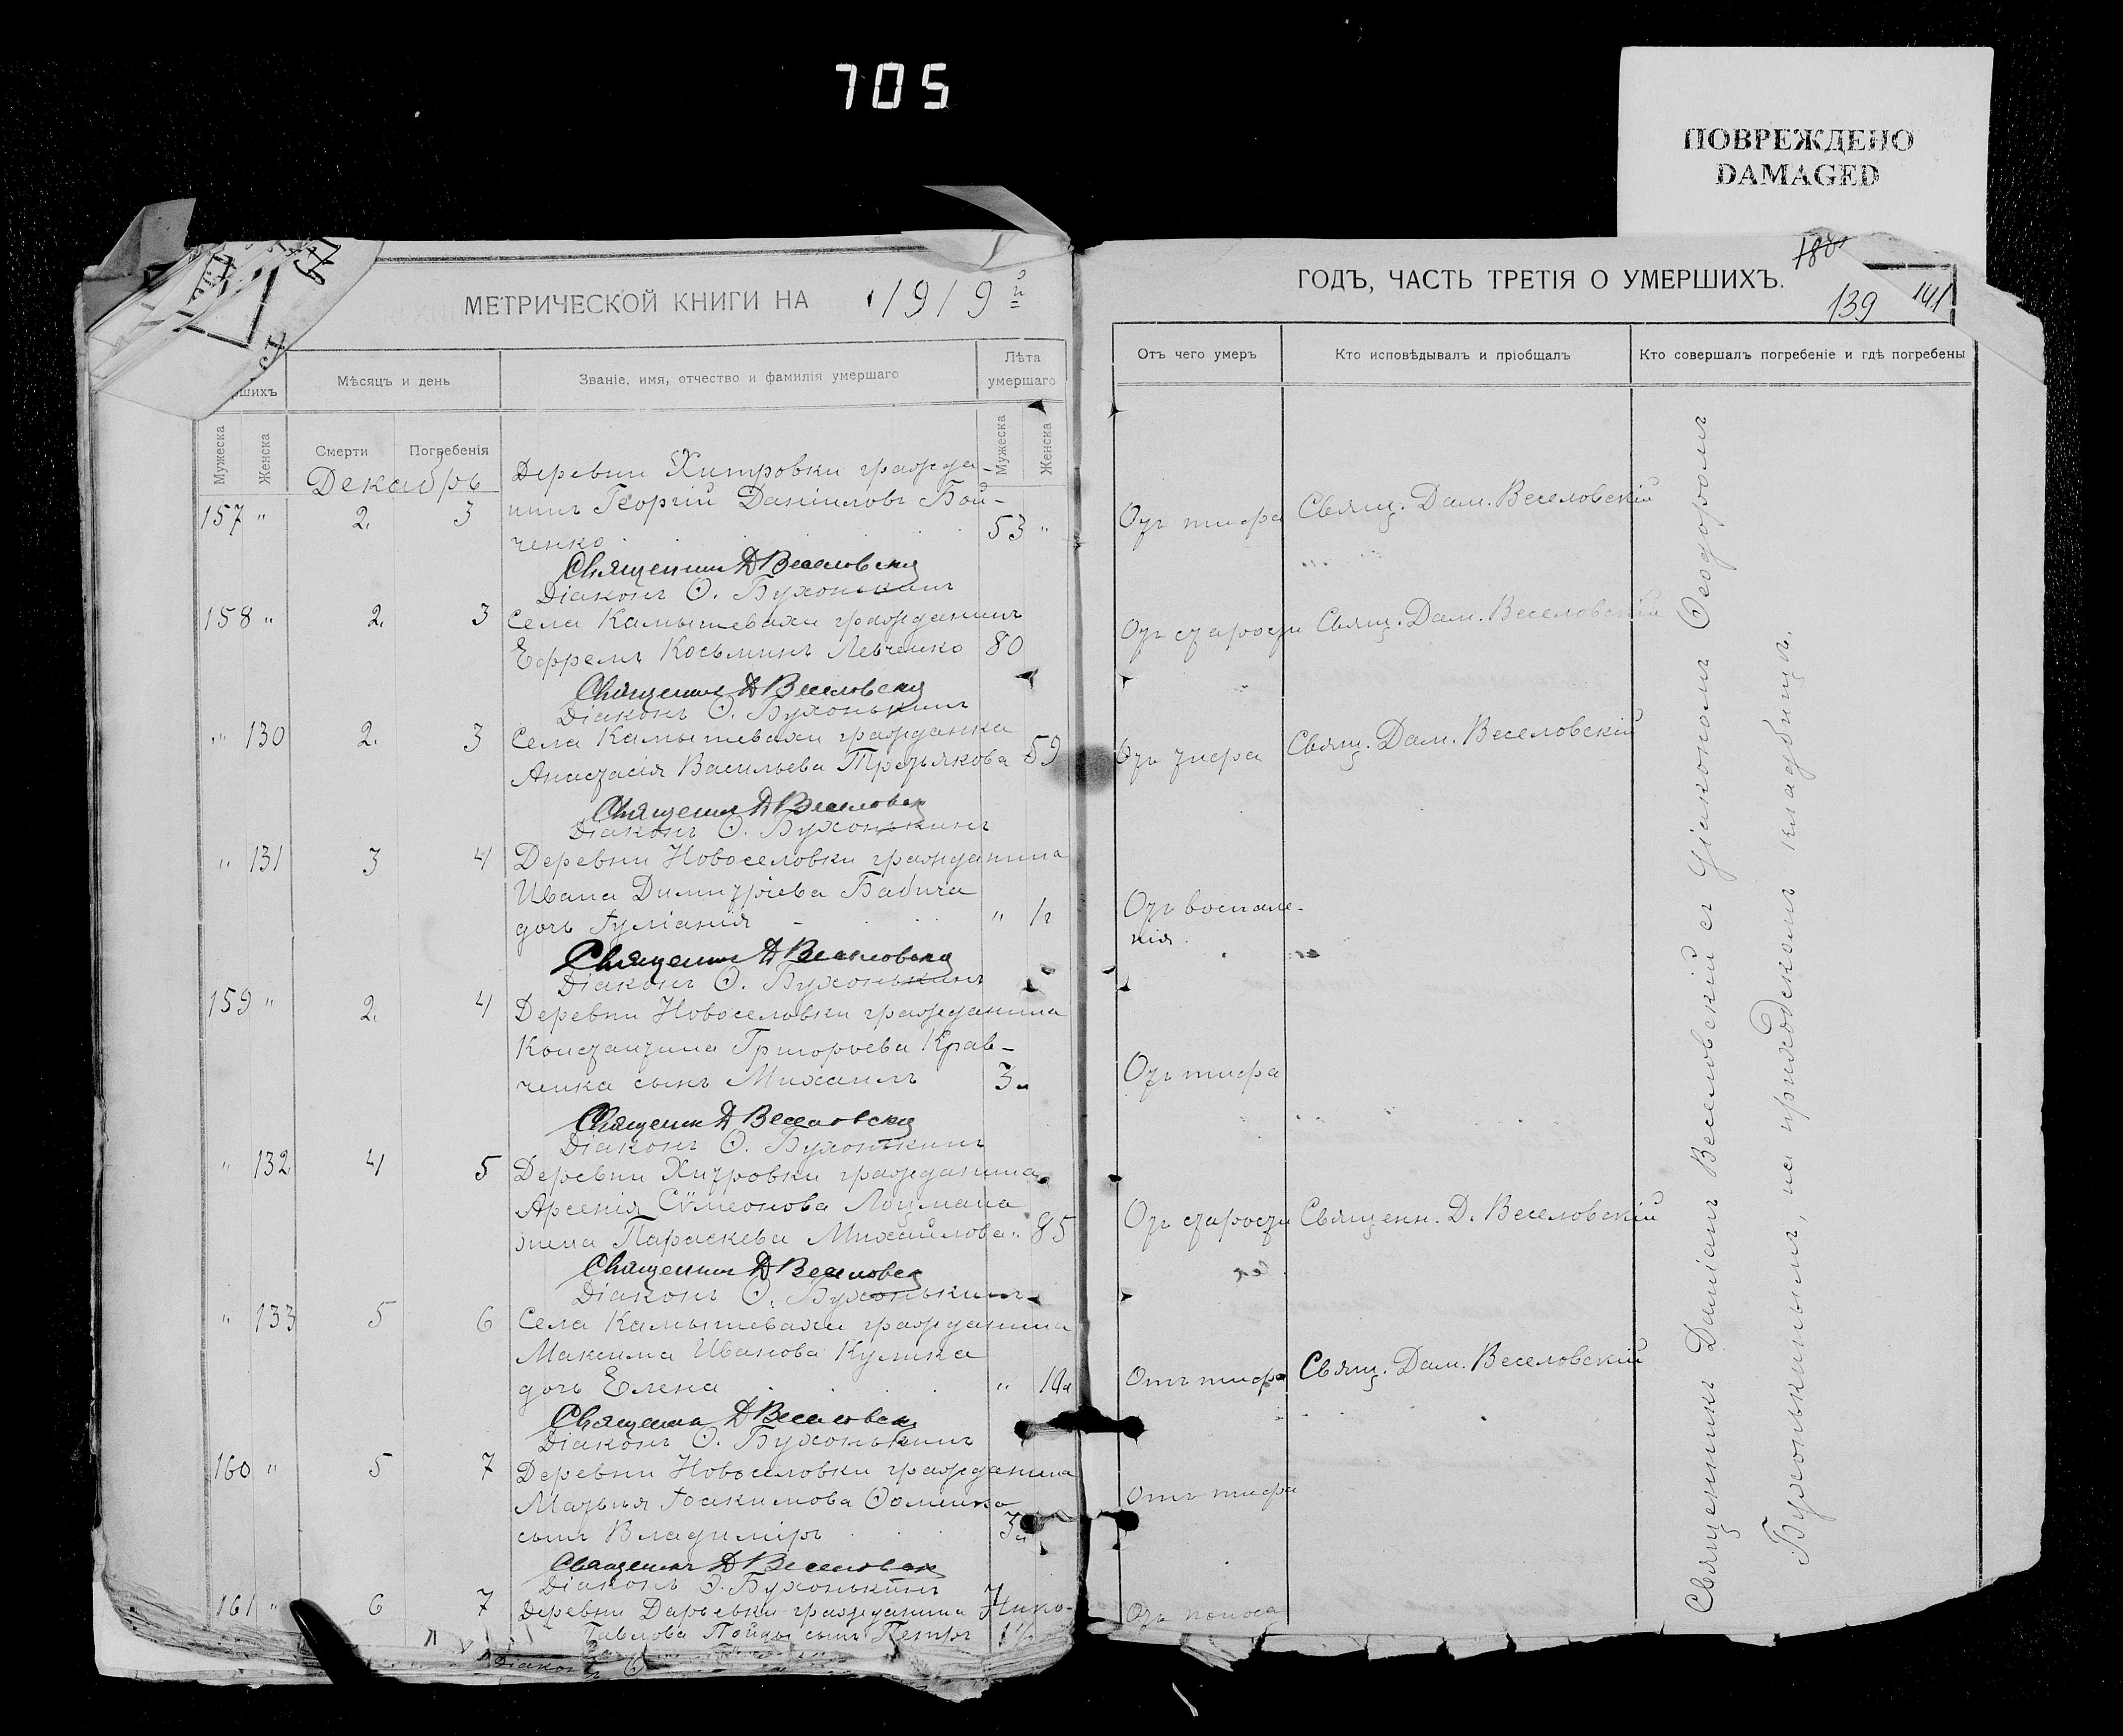 705
ПОВРЕЖДЕНО
DAMAGED
МЕТРИЧЕСКОЙ КНИГИ НА 1919й
шихъ
Мѣсяцъ и день
Званіе, имя, отчество и фамилія умершаго
Лѣта умершаго
Мужеска
Женска
Смерти
Погребенія
Мужеска
Женска
Декабрь
157 " 2. 3
Деревни Хитровки гражда-
нинъ Георгій Даніиловъ Бой-
ченко 53 "
Священникъ Д Веселовскій
Діаконъ Ѳ. Бухонькинъ
158 " 2. 3 Села Камышевахи гражданинъ
Ефремъ Косьминъ Левченко 80
Священникъ Д Веселовскій
Діаконъ Ѳ. Бухонькинъ
" 130 2. 3 Села Камышевахи гражданка
Анастасія Васильева Третьякова 59
Священникъ Д Веселовскій
Діаконъ Ѳ. Бухонькинъ
" 131 3 4 Деревни Новоселовки гражданина
Ивана Димитріева Бабича
дочь Іуліанія " 1г
Священникъ Д Веселовскій
Діаконъ Ѳ. Бухонькинъ
159 " 2. 4 Деревни Новоселовки гражданина
Константина Григорьева Крав-
ченка сынъ Михаилъ 3 "
Священникъ Д Веселовскій
Діаконъ Ѳ. Бухонькинъ
" 132 4 5 Деревни Хитровки гражданина
Арсенія Сѵмеонова Лоцмана
жена Параскева Михайлова " 85
Священникъ Д Веселовскій
Діаконъ Ѳ. Бухонькинъ
" 133 5 6 Села Камышевахи гражданина
Максима Иванова Кулика
дочь Елена "
Священникъ Д Веселовскій
Діаконъ Ѳ. Бухонькинъ
160 " 5 7 Деревни Новоселовки гражданина
Матвѣя Іоакимова Ѳоменко
сынъ Владиміръ 3
Священникъ Д Веселовскій
Діаконъ Ѳ. Бухонькинъ
161 " 6 7 Деревни Дарьевки гражданина Нико-
Павлова сынъ Петръ
Діаконъ Ѳ
ГОДЪ, ЧАСТЬ ТРЕТІЯ О УМЕРШИХЪ.
180
139 141
Отъ чего умеръ
Кто исповѣдывалъ и пріобщалъ
Кто совершалъ погребеніе и гдѣ погребены
Отъ тифа Свящ. Дам. Веселовскій
Отъ старости Свящ. Дам. Веселовскій
Отъ тифа Свящ. Дам. Веселовскій
Отъ воспале-
нія.
Отъ тифа
Отъ старости Священн. Д. Веселовскій
Отъ тифа Свящ. Дам. Веселовскій
Отъ тифа
Отъ поноса
Священникъ Даміанъ Веселовскій съ діакономъ Ѳеодоромъ
Бухонькинымъ, на приходскомъ кладбищѣ.